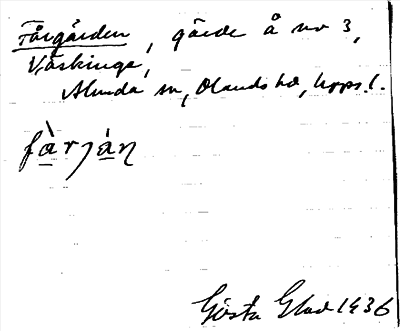 Fårgården, gärde å no 3,
Väskinge,
Alunda sn, Olands hd, Upps. l.
fàrjáɳ
Gösta Glad 1936